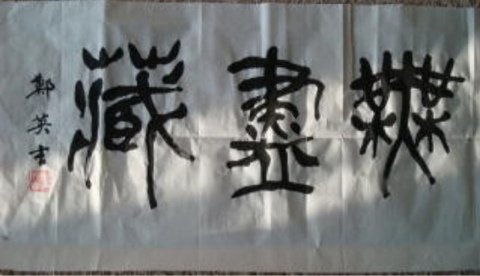 無盡藏
鄭英吉